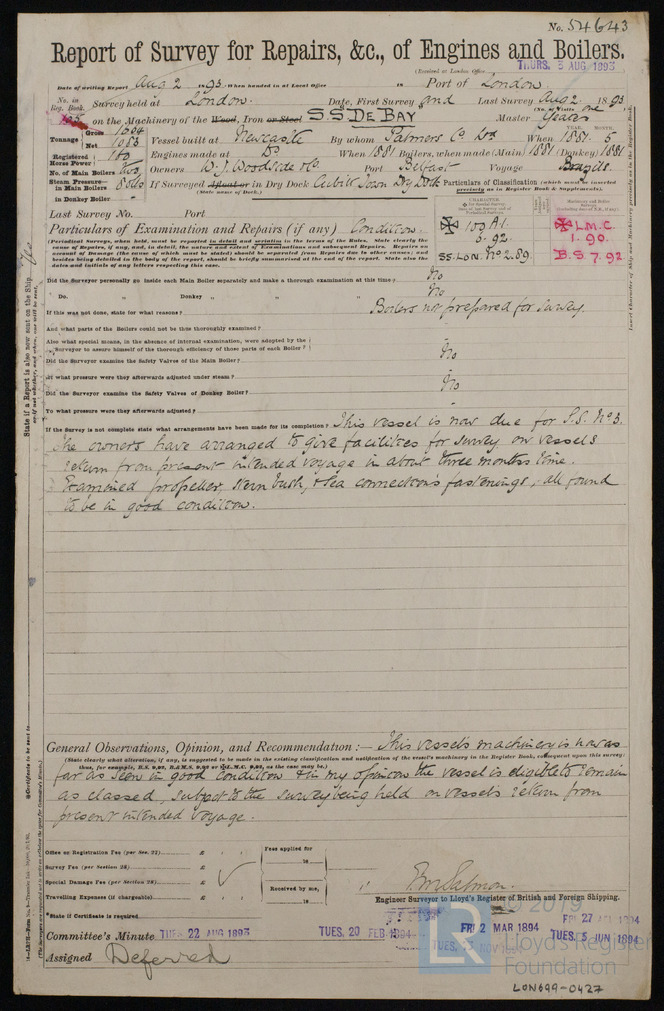 No. 54643
Report of Survey for Repairs, &c., of Engines and Boilers.
(Received at London Office
THURS. 3 AUG 1893
Date of writing Report Aug 2 1893 When handed in at Local Office in Port of London
No. in Reg. Book. Survey held at London. Date, First Survey and Last Survey Aug 2 1893
(No. of Visits one)
on the Machinery of the Wood, Iron or Steel S.S. DE BAY Master
Tonnage Gross
Net 1083 Vessel built at Newcastle By whom Palmers Co Ld When 1881 5
YEAR. MONTH.
Registered Horse Power 180 Engines made at Do When 1881 Boilers, when made (Main) 1881 (Donkey) 1881
No. of Main Boilers two Owners W. J. Woodside & Co. Port Belfast Voyage Brazils
Steam Pressure in Main Boilers 80 lbs If Surveyed Afloat or in Dry Dock Cubitt Town Dry Dock
(State name of Dock.)
in Donkey Boiler -
Particulars of Classification (which must be inserted precisely as in Register Book & Supplements).
Last Survey No. Port
CHARACTER
100 A1.
5.92.
SS. LON. No 2.89
L.M.C.
1.90.
B.S 7.92
Particulars of Examination and Repairs (if any) Condition.
(Periodical Surveys, when held, must be reported in detail and seriatim in the terms of the Rules. State clearly the
cause of Repairs, if any, and, in detail, the nature and extent of Examinations and subsequent Repairs. Repairs on
account of Damage (the cause of which must be stated) should be separated from Repairs due to other causes; and
besides being detailed in the body of the report, should be briefly summarised at the end of the report. State also the
dates and initials of any letters respecting this case.
Did the Surveyor personally go inside each Main Boiler separately and make a thorough examination at this time? No
Do. " Donkey " " " " No
If this was not done, state for what reasons? Boilers not prepared for survey.
And what parts of the Boilers could not be thus thoroughly examined?
Also what special means, in the absence of internal examination, were adopted by the
Surveyor to assure himself of the thorough efficiency of those parts of each Boiler?
Did the Surveyor examine the Safety Valves of the Main Boiler? No
At what pressure were they afterwards adjusted under steam?
Did the Surveyor examine the Safety Valves of Donkey Boiler? No
To what pressure were they afterwards adjusted? -
If the Survey is not complete state what arrangements have been made for its completion? This vessel is now due for S.S. No 3.
The owners have arranged to give facilities for survey on vessels
return from present intended voyage in about three months time.
Examined propeller, stern bush, & sea connections fastenings, all found
to be in good condition.
General Observations, Opinion, and Recommendation :— This vessels machinery is now as
(State clearly what alteration, if any, is suggested to be made in the existing classification and notification of the vessel's machinery in the Register Book, consequent upon this survey:
thus, for example, B.S. 9,92 or L.M.C. 9,92, as the case may be.)
far as seen in good condition & in my opinion the vessel is eligible to remain
as classed, subject to the survey being held on vessels return from
present intended voyage.
Office or Registration Fee (per Sec. 27) £ : :
Survey Fee (per Section 28) £ : :
Special Damage Fee (per Section 28) £ : :
Travelling Expenses (if chargeable) £ : :
Fees applied for
18
Received by me,
18
Engineer Surveyor to Lloyd's Register of British and Foreign Shipping.
*State if Certificate is required
Committee's Minute TUES. 22 AUG 1893 TUES. 20 FEB 1894 FRI. 2 MAR 1894 TUES. 5 JUN 1894
Assigned Deferred
State if a Report is also now sent on the Ship
No
© 2019
LR
Lloyd's Register
Foundation
LON699-0427